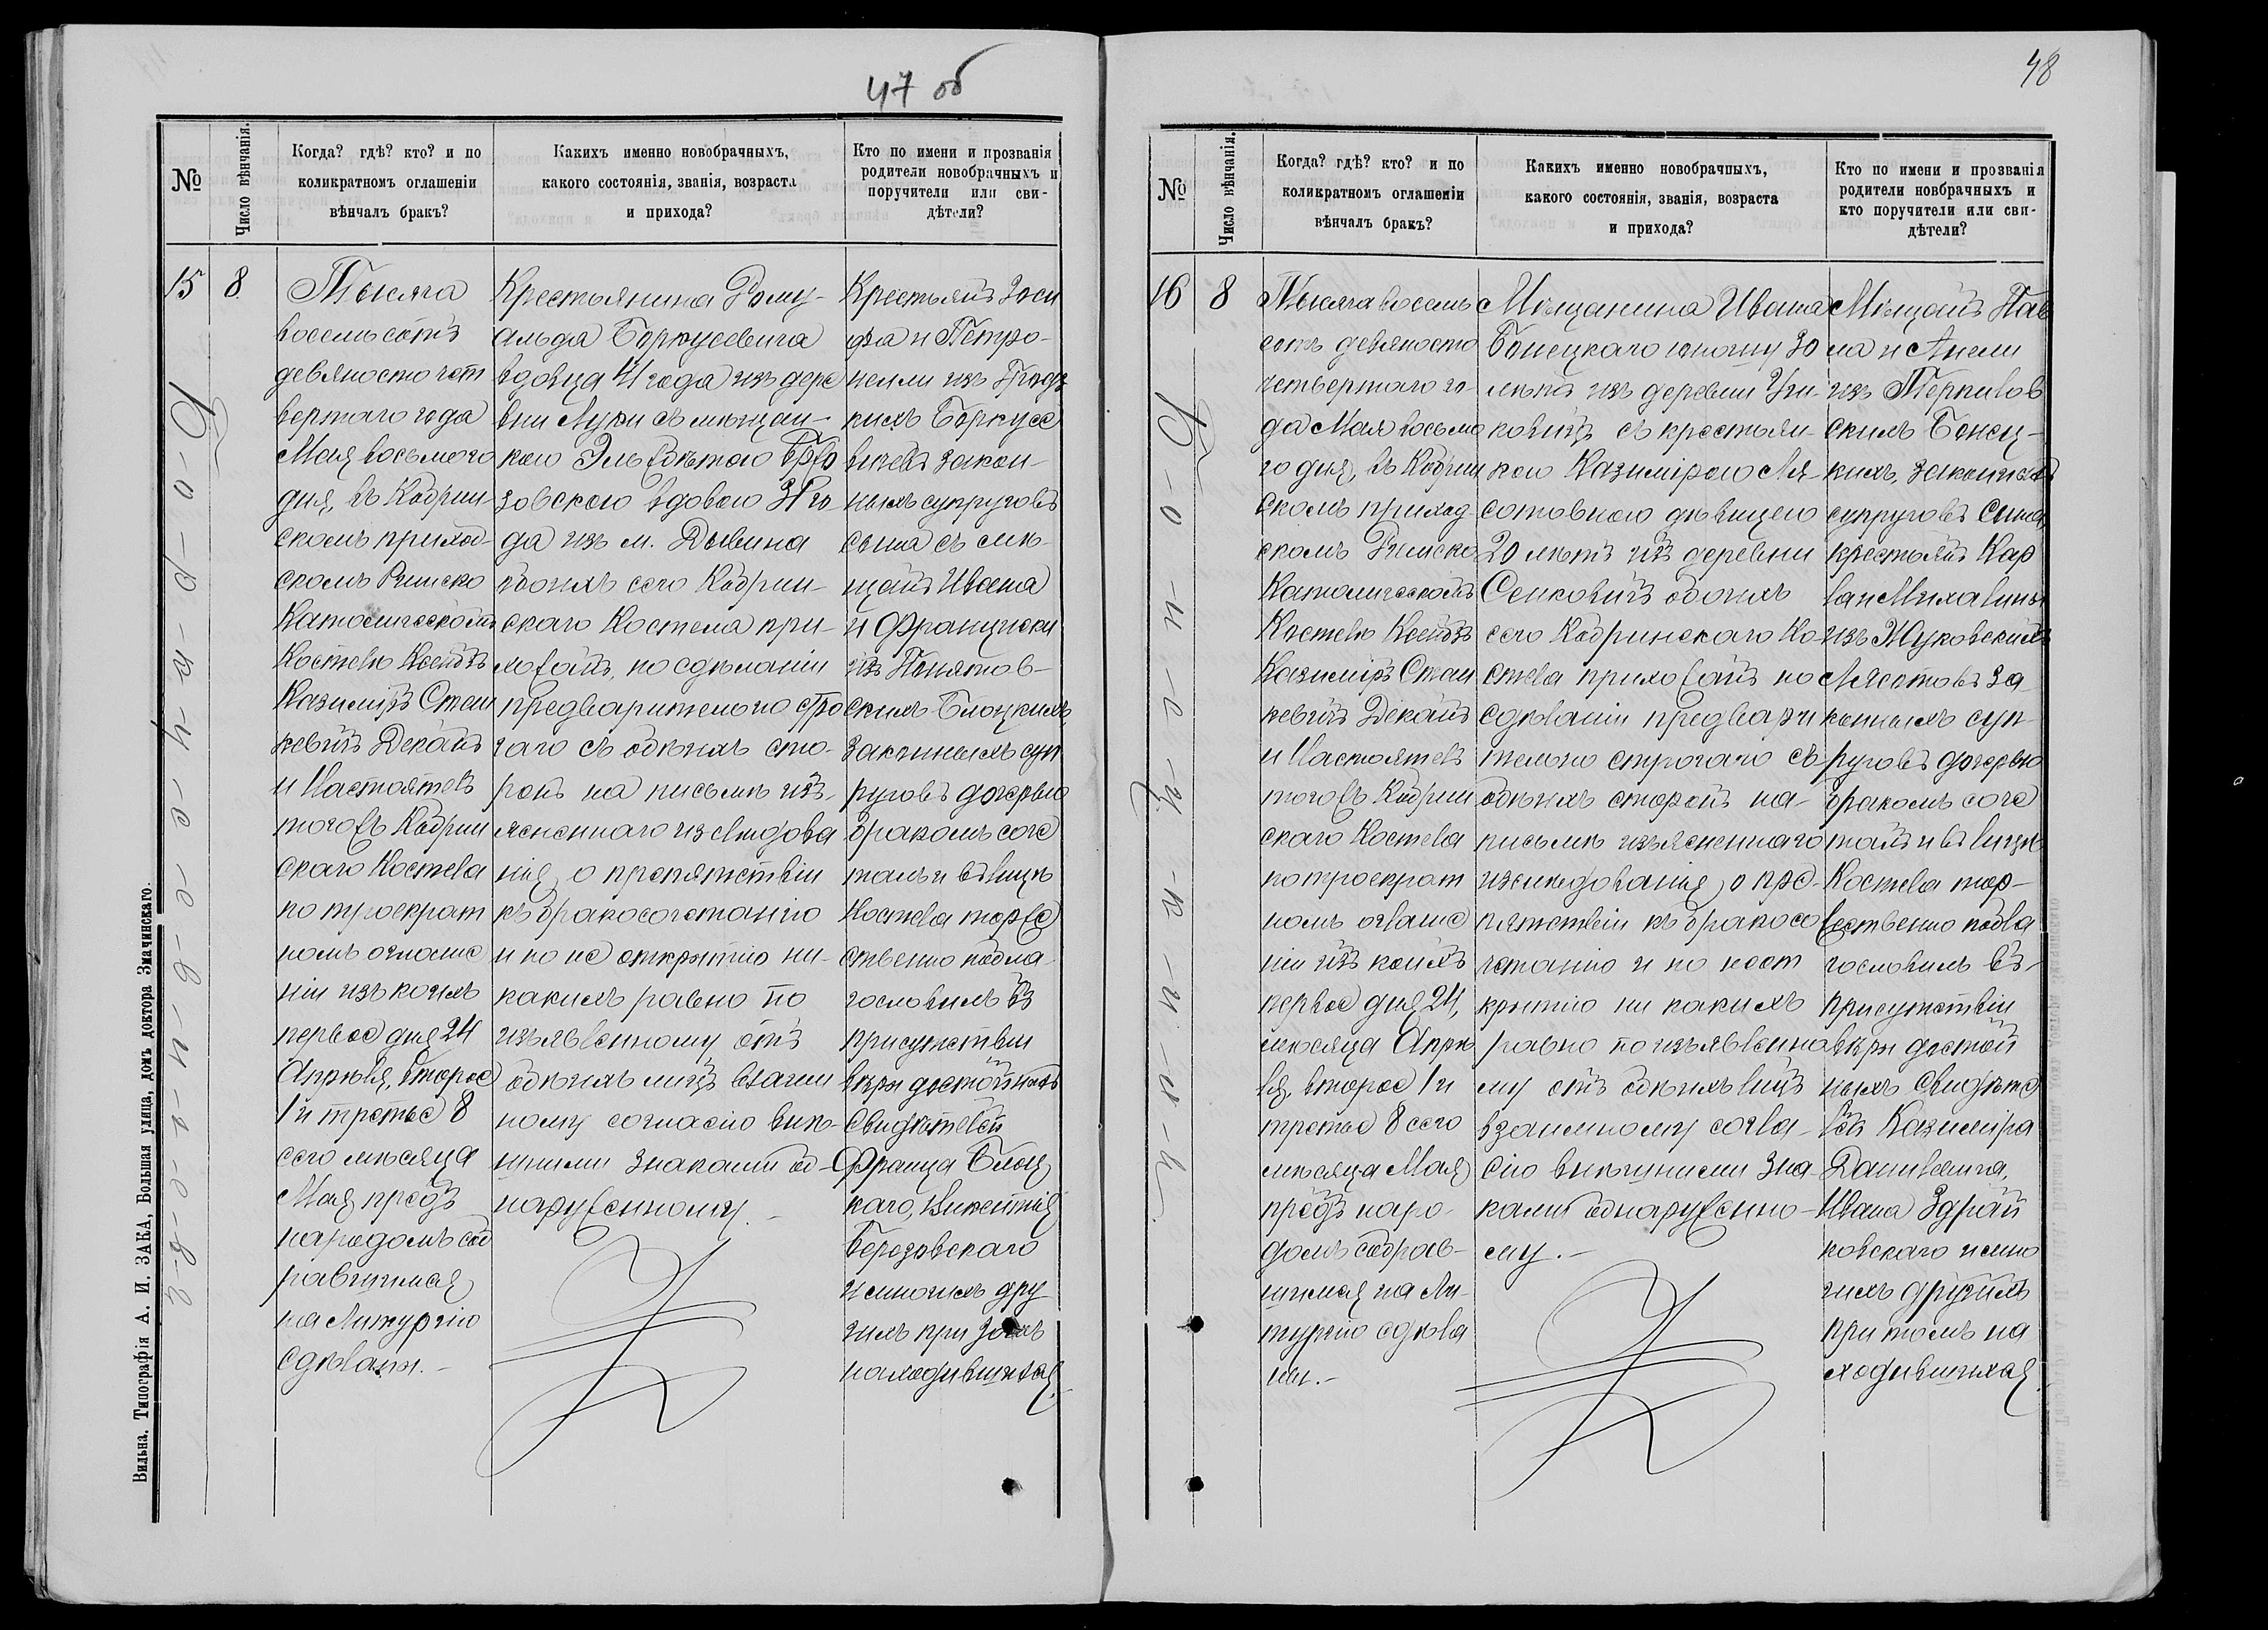 47 об
№
Число вѣнчанія.
Когда? гдѣ? кто? и по
коликратномъ оглашеніи
вѣнчалъ бракъ?
Какихъ именно новобрачныхъ,
какого состоянія, званія, возраста
и прихода?
Кто по имени и прозванія
родители новобрачныхъ и
поручители или сви-
дѣтели?
15
8
Тысяча
восемьсотъ
девяносто чет
вертаго года
Мая восьмого
дня, въ Кобрин
скомъ приход-
скомъ Римско
Католическомъ
Костелѣ Ксендзъ
Казиміръ Стан
кевичъ Деканъ
и Настоятель
тогожъ Кобрин
скаго Костела
по троекрат
номъ оглаше
ніи изъ коихъ
первое дня 24
Апрѣля, второе
1 и третье 8
сего мѣсяца
Мая предъ
народомъ соб
равшимся
на Литургію
сдѣланы.-
Крестьянина Рому-
альда Боркусевича
вдовца 41 года изъ дере
вни Луки съ мѣщан-
кою Эльжбетою
зовскою вдовою го-
да изъ м. Дывина
обоихъ сего Кобрин-
скаго Костела при-
хожанъ, по сдѣланіи
предварительно стро
гаго съ обѣихъ сто-
ронъ на письмѣ изъ-
ясненнаго изслѣдова
нія, о препятствіи
къ бракосочетанію
и по не открытію ни-
какихъ равно по
изъявленному отъ
обѣихъ лицъ взаим
ному согласію внѣ-
шними знаками об-
наруженному.-
Крестьянъ Іоси
фа и Петро-
нелли изъ
кихъ Боркусе
вичевъ закон-
ныхъ супруговъ
сына съ мѣ-
щанъ Ивана
и Франциски
изъ Понятов-
скихъ Блоцкихъ
законныхъ суп
руговъ дочерью
бракомъ соче
талъ и въ лицѣ
Костела торже
ственно побла-
гословилъ въ
присутствіи
вѣры достойныхъ
Свидѣтелей
Франца Блоц
каго, Викентія
Березовскаго
и многихъ дру
гихъ при томъ
находившихся.
Вильна. Типографія А. И. ЗАКА, Большая улица, домъ доктора Змачинскаго.
48
№
Число вѣнчанія.
Когда? гдѣ? кто? и по
коликратномъ оглашеніи
вѣнчалъ бракъ?
Какихъ именно новобрачныхъ,
какого состоянія, званія, возраста
и прихода?
Кто по имени и прозванія
родители новбрачныхъ и
кто поручители или сви-
дѣтели?
16
8
Тысяча восемь
сотъ девяносто
четвертаго го-
да Мая восьмо
го дня, въ Кобрин
скомъ приход-
скомъ Римско
Католическомъ
Костелѣ Ксендзъ
Казиміръ Стан
кевичъ Деканъ
и Настоятель
тогожъ Кобрин
скаго Костела
по троекрат
номъ оглаше
ніи изъ коихъ
первое дня 24,
мѣсяца Апрѣ
ля, второе 1 и
третье 8 сего
мѣсяца Мая,
предъ наро-
домъ собрав-
шимся на Ли-
тургію сдѣла
ны.-
Мѣщанина Ивана
Бонецкаго юношу 30
лѣтъ изъ деревни
съ крестьян-
кою Казимірою Ля-
сотовною дѣвицею
20 лѣтъ изъ деревни
Сенковичъ обоихъ
сего Кобринскаго Ко-
стела прихожанъ по
сдѣланіи предвари
тельно строгаго съ
обѣихъ сторонъ на-
письмѣ изъясненнаго
изслѣдованія, о пре-
пятствіи къ бракосо
четанію и по неот
крытію ни какихъ
равно по изъявленно
му отъ обѣихъ лицъ
взаимному согла-
сію внѣшними зна-
ками обнаруженно-
му.-
Мѣщанъ Пав
ла и Анели
изъ
Бонец-
кихъ, законныхъ
супруговъ сына,
крестьянъ Кар
ла и Михалины
изъ Жуковскихъ
Лясотовъ за
конныхъ суп-
руговъ дочерью
бракомъ соче
талъ и въ лицѣ
Костела тор-
жественно побла
гословилъ въ-
присутствіи
вѣры достой
ныхъ Свидѣте
лей Казиміра
Данилевича,
Ивана Здрай
ковскаго и мно
гихъ другихъ
при томъ на
ходившихся.